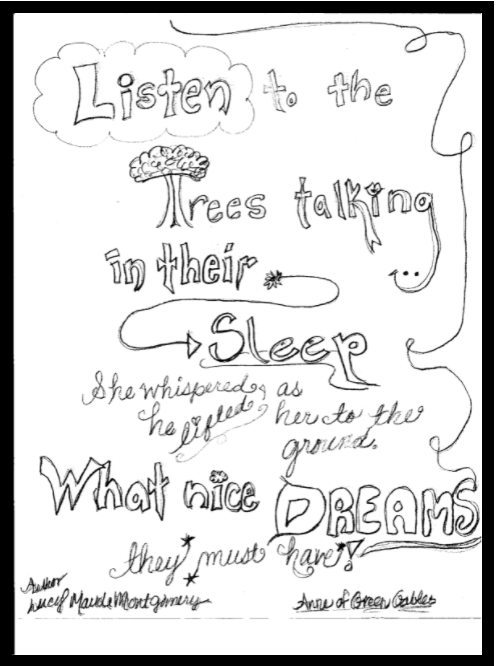 Listen to the
Trees talking
in their
Sleep
She whispered, as
he lifted her to the
ground.
What nice DREAMS
they must have!
Author
Lucy Maude Montgomery
Anne of Green Gables